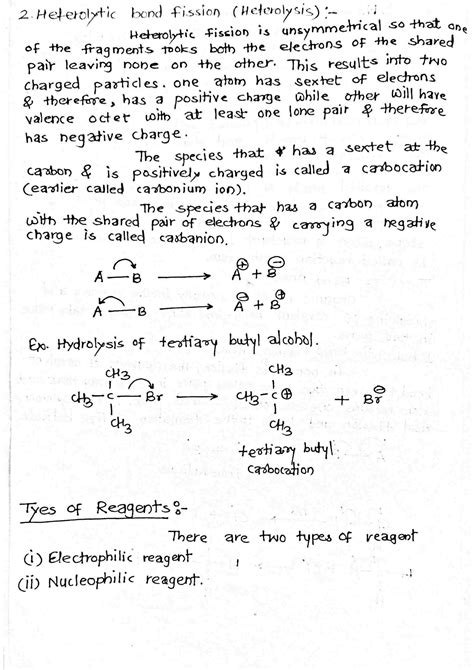 2. Heterolytic bond fission (Heterolysis) :-
Heterolytic fission is unsymmetrical so that one
of the fragments tooks both the electrons of the shared
pair leaving none on the other. This results into two
charged particles. one atom has sextet of electrons
& therefore, has a positive charge while other will have
valence octet with at least one lone pair & therefore
has negative charge.
The species that has a sextet at the
carbon & is positively charged is called a carbocation
(earlier called carbonium ion).
The species that has a carbon atom
with the shared pair of electrons & carrying a negative
charge is called carbanion.
A—B → A⊕ + B⊖
A—B → A⊖ + B⊕
Ex. Hydrolysis of tertiary butyl alcohol.
CH3 CH3
CH3—C—Br → CH3—C⊕ + Br⊖
CH3 CH3
tertiary butyl
carbocation
Tyes of Reagents :-
There are two types of reagent
(i) Electrophilic reagent
(ii) Nucleophilic reagent.